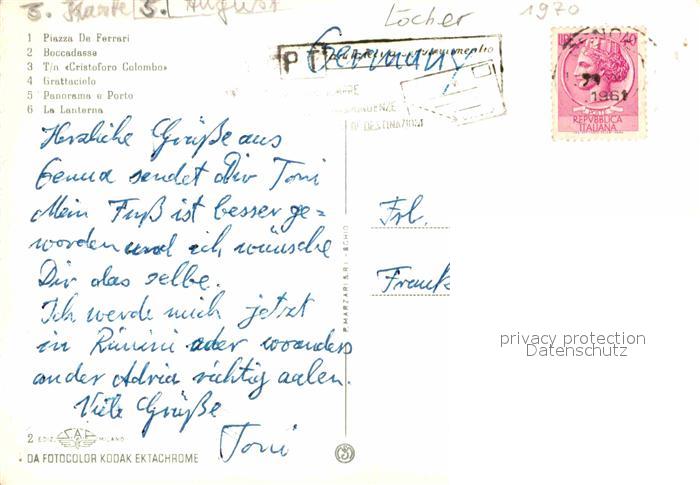 5. Karte 5. August
Locher
1970
1 Piazza De Ferrari
2 Boccadasse
3 T/n «Cristoforo Colombo»
4 Grattacielo
5 Panorama e Porto
6 La Lanterna
PT
Germany
DI DESTINAZIONE
1961
POSTE
REPVBBLICA
ITALIANA
Herzliche Grüße aus
Genua sendet Dir Toni
Mein Fuß ist besser ge=
worden und ich wünsche
Dir das selbe.
Ich werde mich jetzt
in Rimini oder woanders
an der Adria richtig aalen.
Viele Grüße
Toni
Frl.
Frank
P. MARZARI S.R.L. - SCHIO
privacy protection
Datenschutz
2 EDIZ. SAF MILANO
DA FOTOCOLOR KODAK EKTACHROME